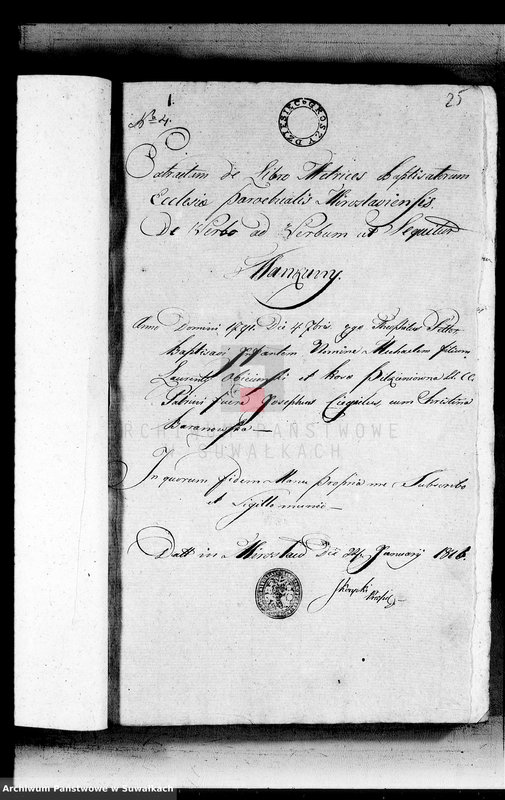 1.
25
No 4.
DZIESIĘC GROSZY
Extractum de Libro Metrices Baptisatorum
Ecclesiæ Parochialis Mirosłaviensis.
De Verbo ad Verbum ut Sequitur
Mankuny.
Anno Domini 1791. Die 4 7bris. ego
Baptisavi Infantem Nomine Michaelem filium
Laurentii et Rosa LL. CC.
Patrini fuere Josephus cum Christina
Baranowska —
In quorum fidem Manu propria me Subscribo
et Sigillo munio —
Datt in Mirosław Die 24 January 1816.
ARCHIWUM PAŃSTWOWE
W SUWAŁKACH
Archiwum Państwowe w Suwałkach